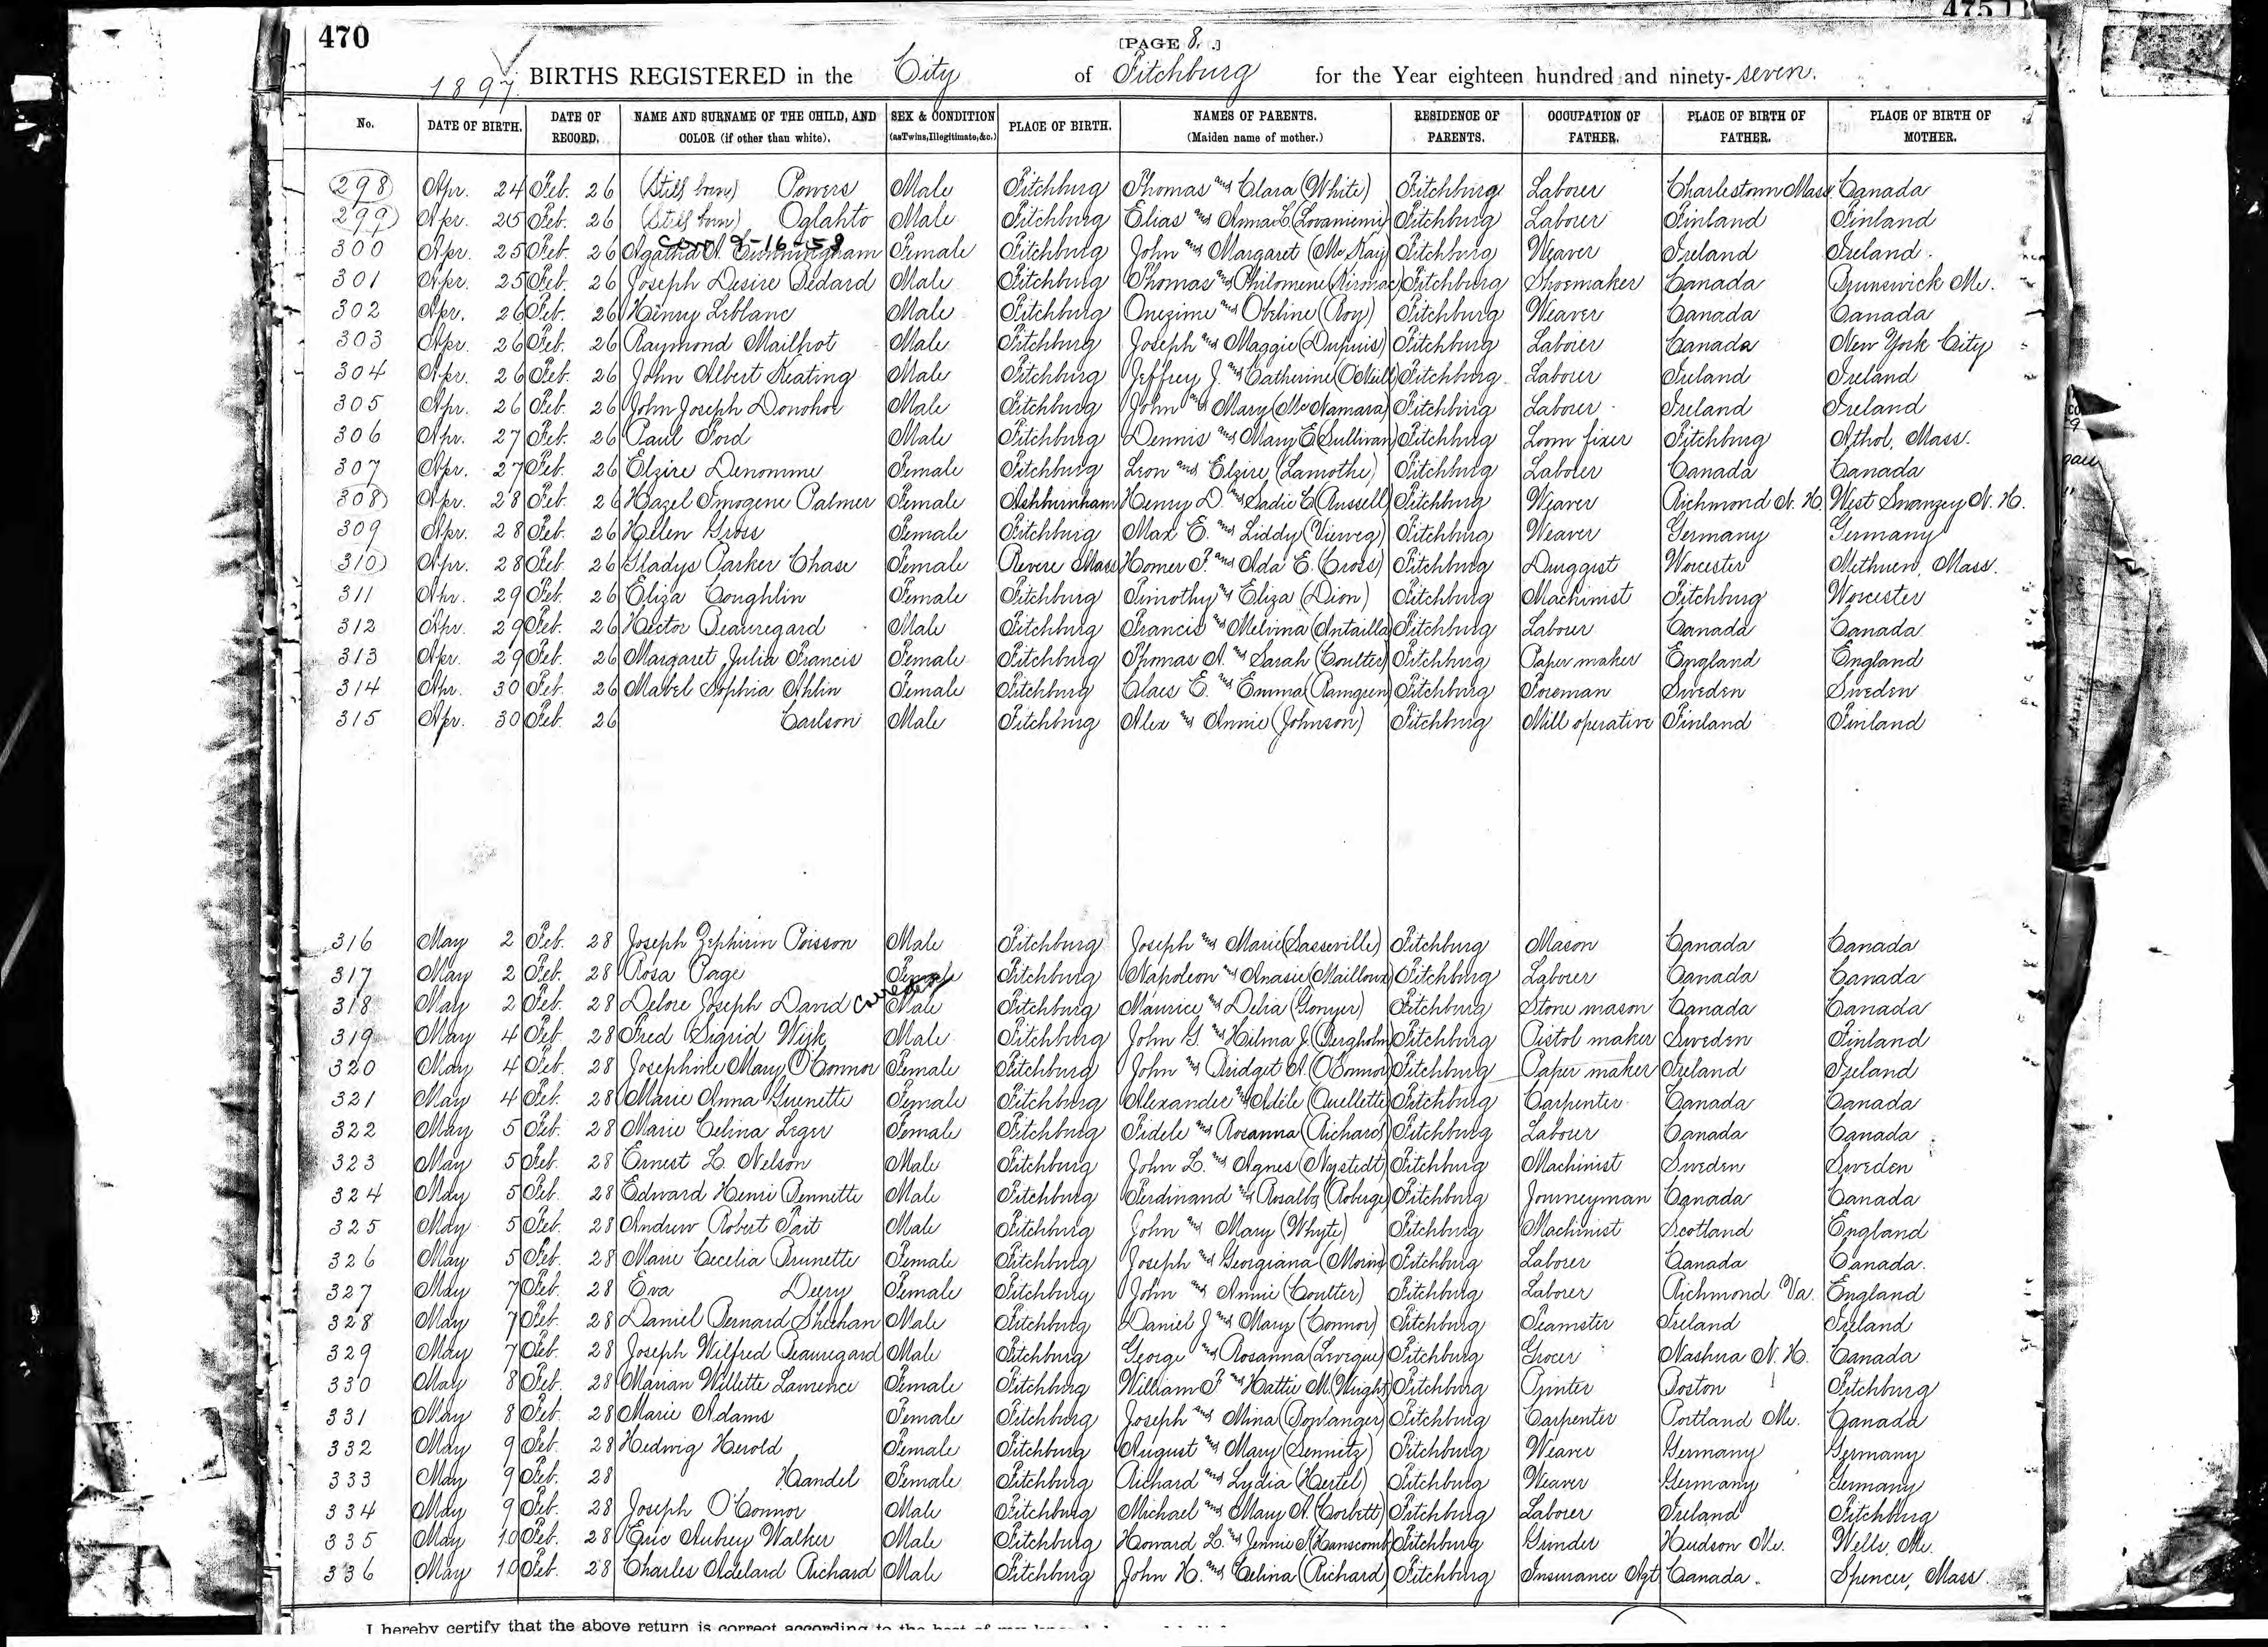 470
475
[PAGE 8.]
1897. BIRTHS REGISTERED in the City of Fitchburg for the Year eighteen hundred and ninety-seven.
No. DATE OF BIRTH. DATE OF RECORD. NAME AND SURNAME OF THE CHILD, AND COLOR (if other than white). SEX & CONDITION (as Twins, Illegitimate, &c.) PLACE OF BIRTH. NAMES OF PARENTS. (Maiden name of mother.) RESIDENCE OF PARENTS. OCCUPATION OF FATHER. PLACE OF BIRTH OF FATHER. PLACE OF BIRTH OF MOTHER.
298 Apr. 24 Feb. 26 (Still born) Powers Male Fitchburg Thomas and Clara (White) Fitchburg Laborer Charlestown Mass. Canada
299 Apr. 25 Feb. 26 (Still born) Oglahto Male Fitchburg Elias and Anna L. (Lovaniemi) Fitchburg Laborer Finland Finland
300 Apr. 25 Feb. 26 Agatha A. Cunningham Female Fitchburg John and Margaret (McKay) Fitchburg Weaver Ireland Ireland.
301 Apr. 25 Feb. 26 Joseph Desire Bedard Male Fitchburg Thomas and Philomene Fitchburg Shoemaker Canada Brunswick Me.
302 Apr. 26 Feb. 26 Henry Leblanc Male Fitchburg Onezime and Obeline (Roy) Fitchburg Weaver Canada Canada
303 Apr. 26 Feb. 26 Raymond Mailhot Male Fitchburg Joseph and Maggie (Dupuis) Fitchburg Laborer Canada New York City
304 Apr. 26 Feb. 26 John Albert Keating Male Fitchburg Jeffrey J. and Catherine (O'Neill) Fitchburg Laborer Ireland Ireland
305 Apr. 26 Feb. 26 John Joseph Donohoe Male Fitchburg John and Mary (McNamara) Fitchburg Laborer Ireland Ireland
306 Apr. 27 Feb. 26 Paul Ford Male Fitchburg Dennis and Mary E (Sullivan) Fitchburg Loom fixer Fitchburg Athol, Mass.
307 Apr. 27 Feb. 26 Elzire Denomme Female Fitchburg Leon and Elzire (Lamothe) Fitchburg Laborer Canada Canada
308 Apr. 28 Feb. 26 Hazel Imogene Palmer Female Ashburnham Henry D. and Sadie E (Russell) Fitchburg Weaver Richmond N. H. West Swanzey N. H.
309 Apr. 28 Feb. 26 Helen Gross Female Fitchburg Max E. and Liddy (Vieweg) Fitchburg Weaver Germany Germany
310 Apr. 28 Feb. 26 Gladys Parker Chase Female Revere Mass Homer F. and Ada E. (Cross) Fitchburg Druggist Worcester Methuen, Mass.
311 Apr. 29 Feb. 26 Eliza Coughlin Female Fitchburg Timothy and Eliza (Dion) Fitchburg Machinist Fitchburg Worcester
312 Apr. 29 Feb. 26 Hector Beauregard Male Fitchburg Francis and Melvina (Antailla) Fitchburg Laborer Canada Canada
313 Apr. 29 Feb. 26 Margaret Julia Francis Female Fitchburg Thomas A. and Sarah (Coulter) Fitchburg Paper maker England England
314 Apr. 30 Feb. 26 Mabel Sophia Ahlin Female Fitchburg Claes E. and Emma (Ramgren) Fitchburg Foreman Sweden Sweden
315 Apr. 30 Feb. 26 Carlson Male Fitchburg Alex and Annie (Johnson) Fitchburg Mill operative Finland Finland
316 May 2 Feb. 28 Joseph Zephirin Poisson Male Fitchburg Joseph and Marie (Sasseville) Fitchburg Mason Canada Canada
317 May 2 Feb. 28 Rosa Page Female Fitchburg Napoleon and Anasie (Mailloux) Fitchburg Laborer Canada Canada
318 May 2 Feb. 28 Delore Joseph David Male Fitchburg Maurice and Delia (Gonyer) Fitchburg Stone mason Canada Canada
319 May 4 Feb. 28 Fred Sigrid Wijk Male Fitchburg John G. and Hilma J. (Bergholm) Fitchburg Pistol maker Sweden Finland
320 May 4 Feb. 28 Josephine Mary O'Connor Female Fitchburg John and Bridget A. (O'Connor) Fitchburg Paper maker Ireland Ireland
321 May 4 Feb. 28 Marie Anna Guenette Female Fitchburg Alexander and Adèle (Ouellette) Fitchburg Carpenter Canada Canada
322 May 5 Feb. 28 Marie Celina Leger Female Fitchburg Fidele and Rosanna (Richard) Fitchburg Laborer Canada Canada
323 May 5 Feb. 28 Ernest L. Nelson Male Fitchburg John L. and Agnes (Nystedt) Fitchburg Machinist Sweden Sweden
324 May 5 Feb. 28 Edward Henri Pennette Male Fitchburg Ferdinand and Rosalba (Roberge) Fitchburg Journeyman Canada Canada
325 May 5 Feb. 28 Andrew Robert Tait Male Fitchburg John and Mary (Whyte) Fitchburg Machinist Scotland England
326 May 5 Feb. 28 Marie Cecelia Brunette Female Fitchburg Joseph and Georgiana (Morin) Fitchburg Laborer Canada Canada.
327 May 7 Feb. 28 Eva Deery Female Fitchburg John and Annie (Coulter) Fitchburg Laborer Richmond Va. England
328 May 7 Feb. 28 Daniel Bernard Sheehan Male Fitchburg Daniel J and Mary (Connor) Fitchburg Teamster Ireland Ireland
329 May 7 Feb. 28 Joseph Wilfred Beauregard Male Fitchburg George and Rosanna (Leveque) Fitchburg Grocer Nashua N. H. Canada
330 May 8 Feb. 28 Marian Willette Lawrence Female Fitchburg William F and Hattie M. (Wright) Fitchburg Printer Boston Fitchburg
331 May 8 Feb. 28 Marie Adams Female Fitchburg Joseph and Mina (Boulanger) Fitchburg Carpenter Portland Me. Canada
332 May 9 Feb. 28 Hedwig Herold Female Fitchburg August and Mary (Sennitz) Fitchburg Weaver Germany Germany
333 May 9 Feb. 28 Handel Female Fitchburg Richard and Lydia (Hertel) Fitchburg Weaver Germany Germany
334 May 9 Feb. 28 Joseph O'Connor Male Fitchburg Michael and Mary A. (Corbett) Fitchburg Laborer Ireland Fitchburg
335 May 10 Feb. 28 Eric Aubrey Walker Male Fitchburg Howard L. and Jennie A. (Hanscomb) Fitchburg Grinder Hudson Me. Wells, Me.
336 May 10 Feb. 28 Charles Adelard Richard Male Fitchburg John H. and Celina (Richard) Fitchburg Insurance Agt. Canada. Spencer, Mass.
I hereby certify that the above return is correct according to the best of my